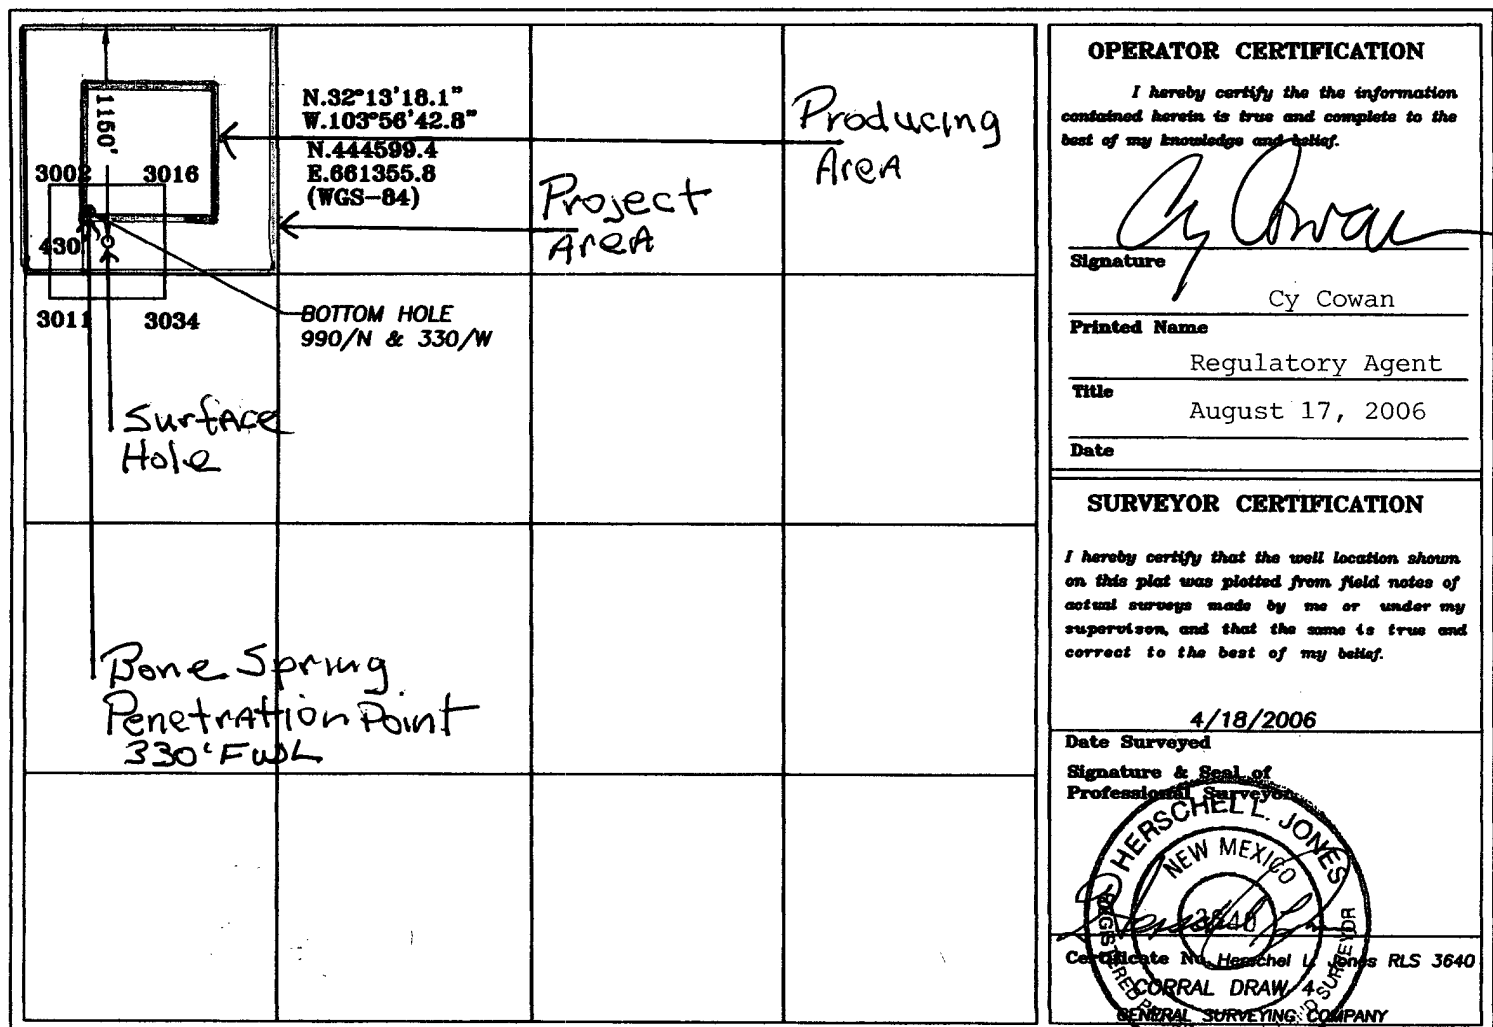 1150'
N.32°13'18.1"
W.103°56'42.8"
N.444599.4
E.661355.8
(WGS-84)
Producing
Area
3002 3016
Project
Area
430'
3011 3034
BOTTOM HOLE
990/N & 330/W
Surface
Hole
Bone Spring
Penetration Point
330' FWL
OPERATOR CERTIFICATION
I hereby certify the the information
contained herein is true and complete to the
best of my knowledge and belief.
Cy Cowan
Signature
Cy Cowan
Printed Name
Regulatory Agent
Title
August 17, 2006
Date
SURVEYOR CERTIFICATION
I hereby certify that the well location shown
on this plat was plotted from field notes of
actual surveys made by me or under my
supervison, and that the same is true and
correct to the best of my belief.
4/18/2006
Date Surveyed
Signature & Seal of
Professional Surveyor
HERSCHEL L. JONES
NEW MEXICO
3640
Certificate No. Herschel L. Jones RLS 3640
CORRAL DRAW 4
GENERAL SURVEYING COMPANY